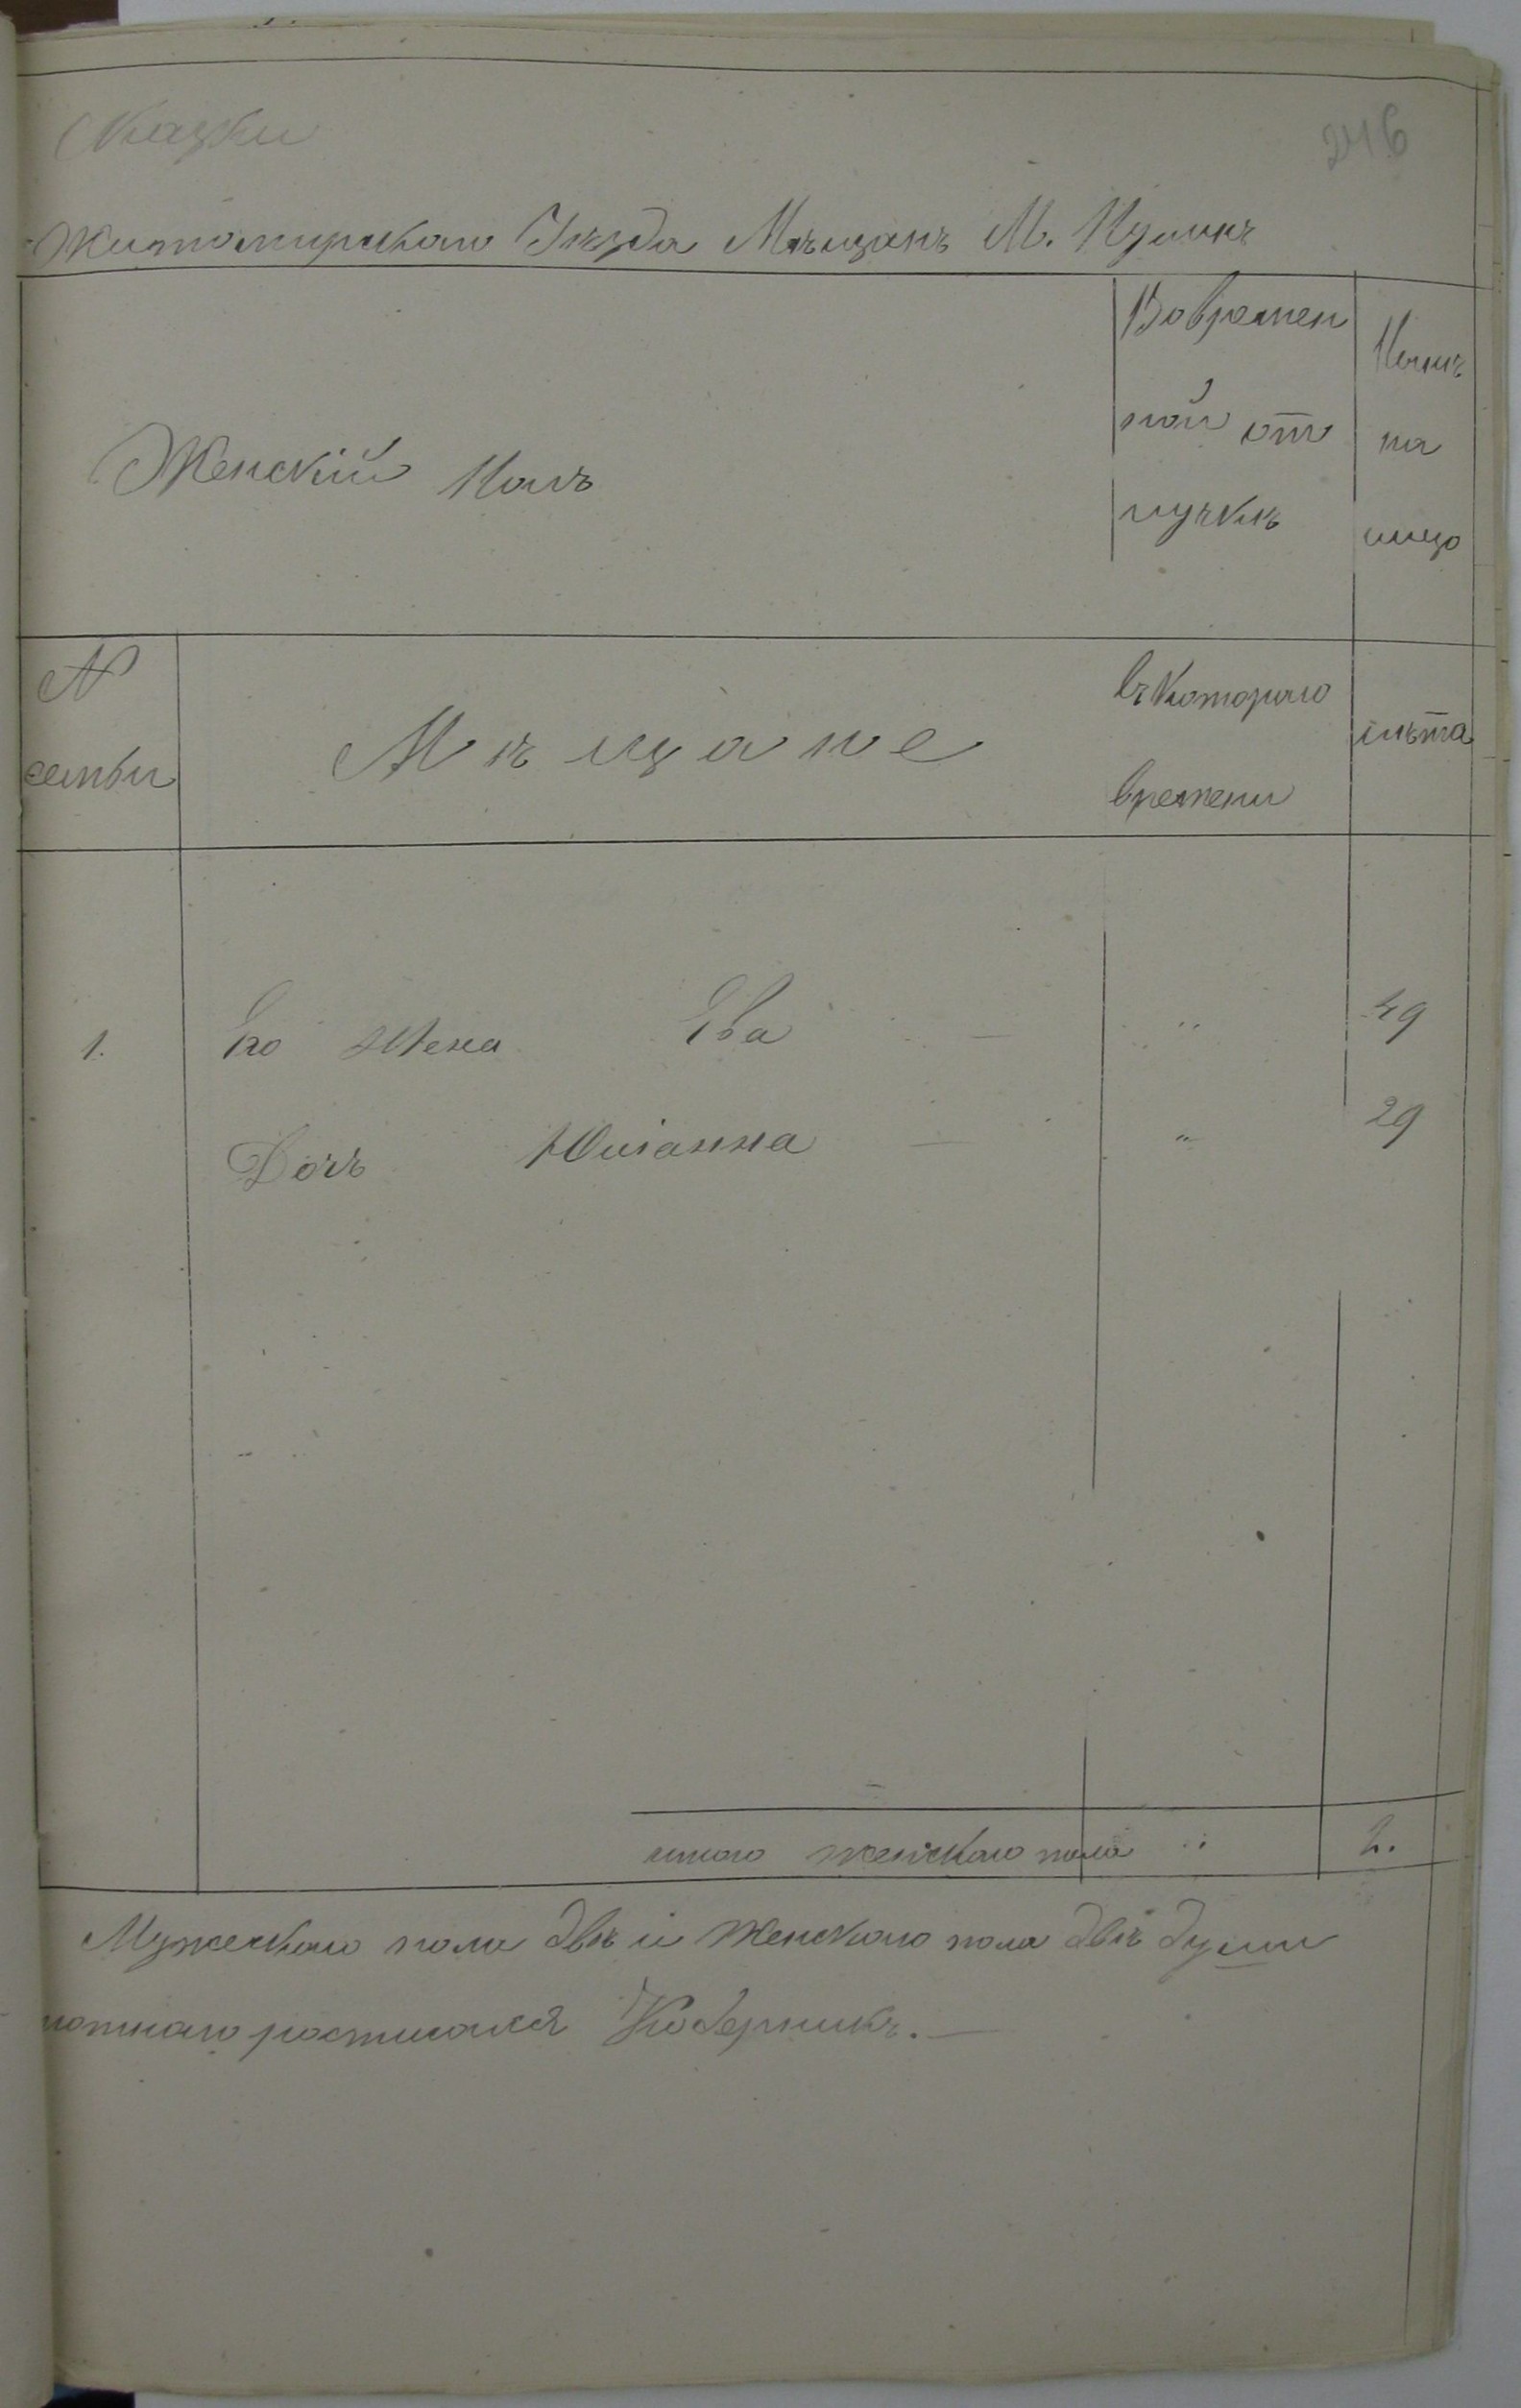 Сказки
246
Житомирскаго Уѣзда Мѣщанъ М. Кулинъ
Женскій Полъ
Во времен
ной от
лучкѣ
Нынѣ
на
лицо
N
семьи
Мѣщане
съ Котораго
времени
лѣта
1. Его Жена Ева — " 49
Дочь Юліанна — " 29
итого женскаго пола " 2.
Мужескаго пола двѣ и Женскаго пола двѣ души
росписался Кодерникъ. —